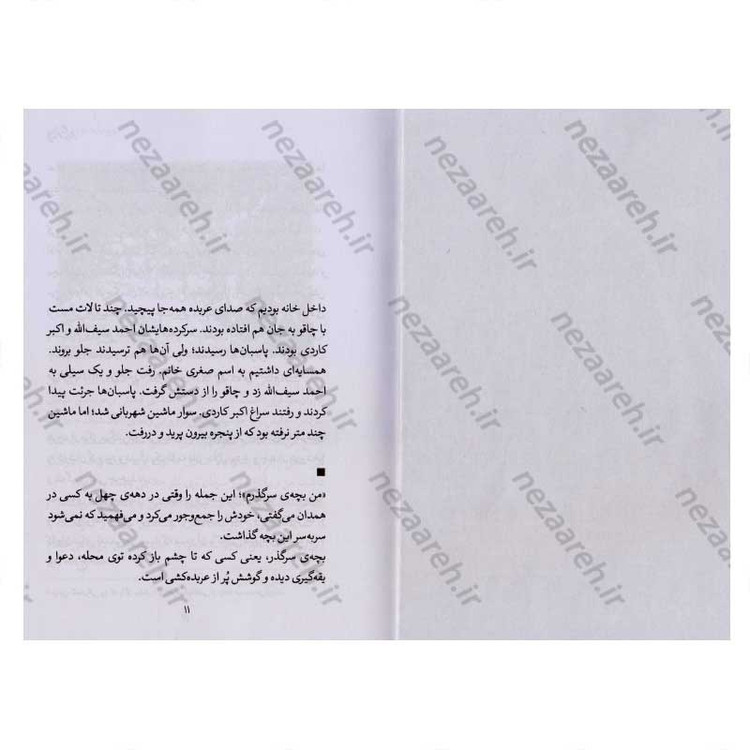 داخل خانه بودیم که صدای عربده همه‌جا پیچید. چند تا لات مست
با چاقو به جان هم افتاده بودند. سرکرده‌هایشان احمد سیف‌الله و اکبر
کاردی بودند. پاسبان‌ها رسیدند؛ ولی آن‌ها هم ترسیدند جلو بروند.
همسایه‌ای داشتیم به اسم صغری خانم. رفت جلو و یک سیلی به
احمد سیف‌الله زد و چاقو را از دستش گرفت. پاسبان‌ها جرئت پیدا
کردند و رفتند سراغ اکبر کاردی. سوار ماشین شهربانی شد؛ اما ماشین
چند متر نرفته بود که از پنجره بیرون پرید و دررفت.
■
«من بچه‌ی سرگذرم»؛ این جمله را وقتی در دهه‌ی چهل به کسی در
همدان می‌گفتی، خودش را جمع‌وجور می‌کرد و می‌فهمید که نمی‌شود
سربه‌سر این بچه گذاشت.
بچه‌ی سرگذر، یعنی کسی که تا چشم باز کرده توی محله، دعوا و
یقه‌گیری دیده و گوشش پُر از عربده‌کشی است.
۱۱
nezaareh.ir
nezaareh.ir
nezaareh.ir
nezaareh.ir
nezaareh.ir
nezaareh.ir
nezaareh.ir
nezaareh.ir
nezaareh.ir
nezaareh.ir
nezaareh.ir
nezaareh.ir